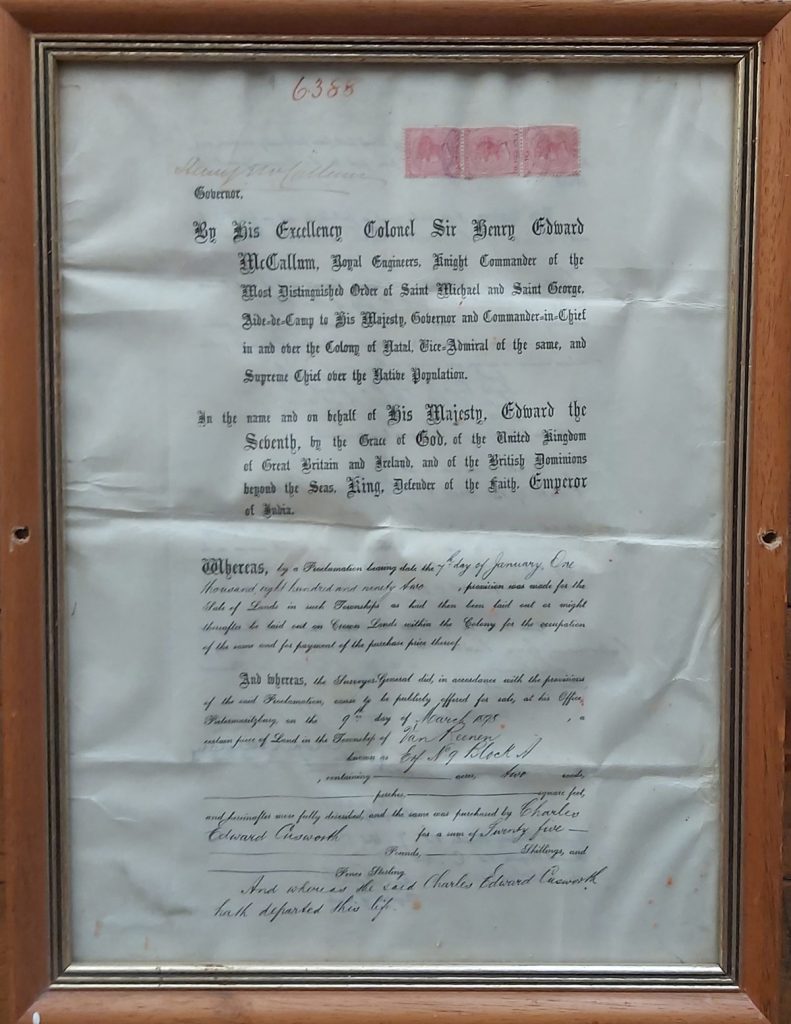 6388
Henry McCallum
Governor.
By His Excellency Colonel Sir Henry Edward
McCallum, Royal Engineers, Knight Commander of the
Most Distinguished Order of Saint Michael and Saint George,
Aide-de-Camp to His Majesty, Governor and Commander-in-Chief
in and over the Colony of Natal, Vice-Admiral of the same, and
Supreme Chief over the Native Population.
In the name and on behalf of His Majesty, Edward the
Seventh, by the Grace of God, of the United Kingdom
of Great Britain and Ireland, and of the British Dominions
beyond the Seas, King, Defender of the Faith, Emperor
of India.
Whereas, by a Proclamation bearing date the 7th day of January, One
thousand eight hundred and ninety two, provision was made for the
Sale of Lands in such Townships as had then been laid out or might
thereafter be laid out on Crown Lands within the Colony for the occupation
of the same and for payment of the purchase price thereof.
And whereas, the Surveyor-General did, in accordance with the provisions
of the said Proclamation, cause to be publicly offered for sale, at his Office,
Pietermaritzburg, on the 9th day of March 1898, a
certain piece of Land in the Township of Van Reenen
known as Erf No 9 Block A
, containing acres, two roods,
perches, square feet,
and hereinafter more fully described, and the same was purchased by Charles
Edward Cusworth for a sum of Twenty five
Pounds, Shillings, and
Pence Sterling.
And whereas the said Charles Edward Cusworth
hath departed this life.